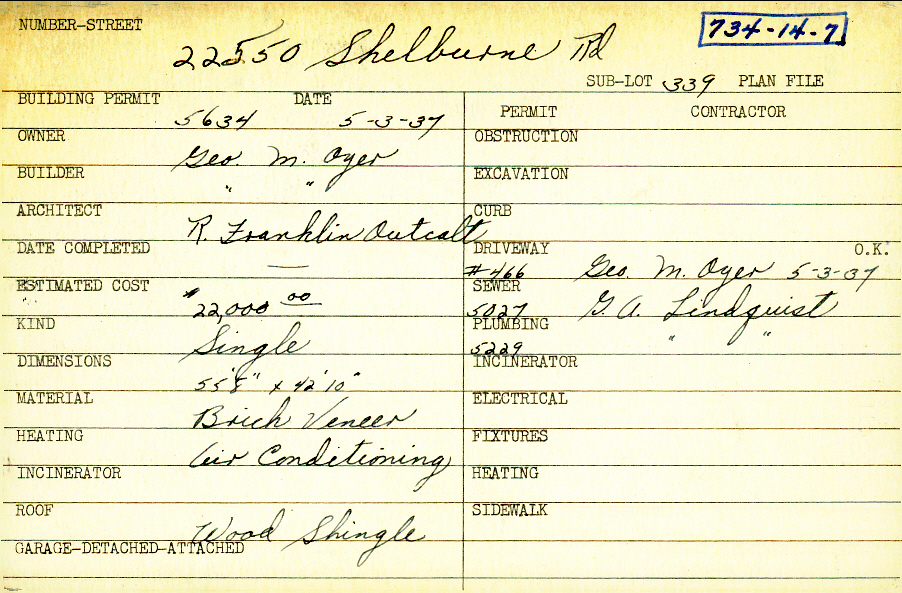 NUMBER-STREET
22550 Shelburne Rd
734-14-7
SUB-LOT 339 PLAN FILE
BUILDING PERMIT 5634 DATE 5-3-37
OWNER Geo. M. Oyer
BUILDER " "
ARCHITECT R. Franklin Outcalt
DATE COMPLETED —
ESTIMATED COST $22,000 00
KIND Single
DIMENSIONS 55'8" x 42'10"
MATERIAL Brick Veneer
HEATING Air Conditioning
INCINERATOR
ROOF Wood Shingle
GARAGE-DETACHED-ATTACHED
PERMIT CONTRACTOR
OBSTRUCTION
EXCAVATION
CURB
DRIVEWAY O.K.
#466 Geo. M. Oyer 5-3-37
SEWER
5027 G. A. Lindquist
PLUMBING " "
5229
INCINERATOR
ELECTRICAL
FIXTURES
HEATING
SIDEWALK